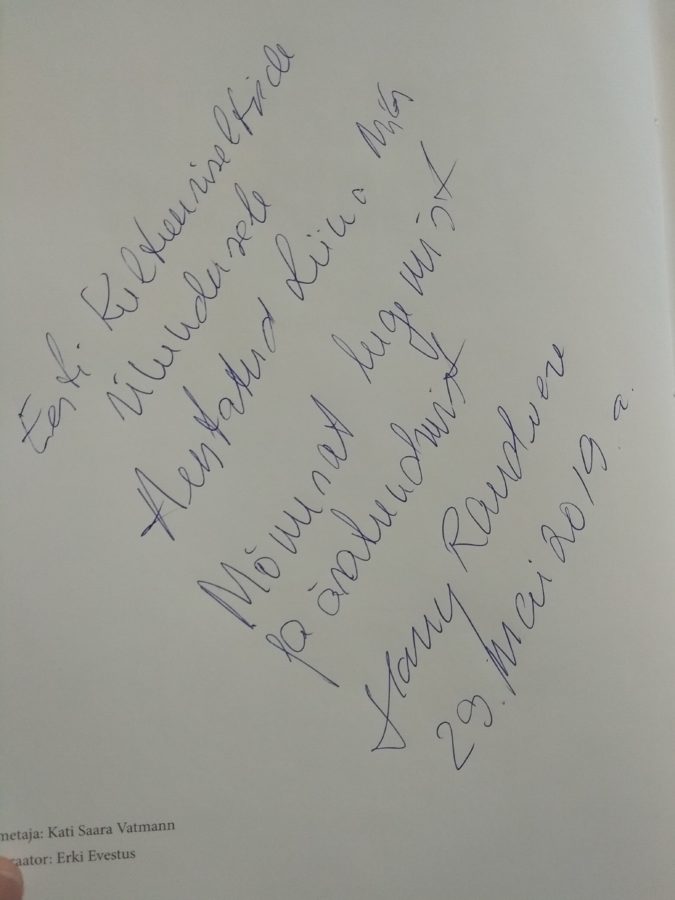 Eesti Kultuuriseltside
Ühendusele
Austatud Liina
Mõnusat lugemist
ja äratundmist
Harry Raudvere
29. mai 2019. a.
metaja: Kati Saara Vatmann
raator: Erki Evestus